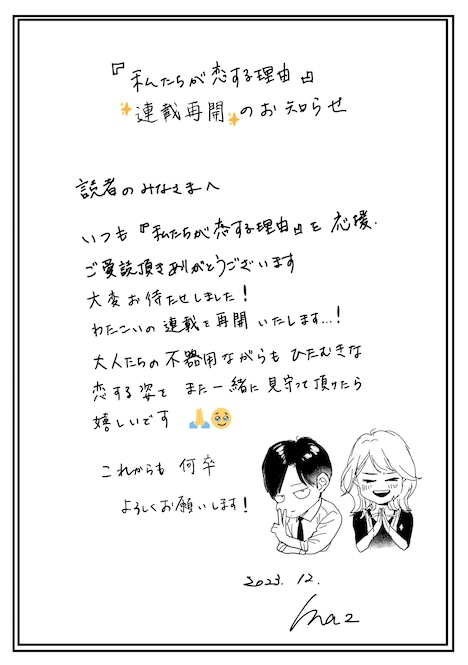 『私たちが恋する理由』
✨連載再開✨のお知らせ
読者のみなさまへ
いつも『私たちが恋する理由』を応援、
ご愛読頂きありがとうございます
大変お待たせしました!
わたこいの連載を再開いたします…!
大人たちの不器用ながらもひたむきな
恋する姿をまた一緒に見守って頂けたら
嬉しいです 🙏🥹
これからも何卒
よろしくお願いします!
2023. 12.
ma2